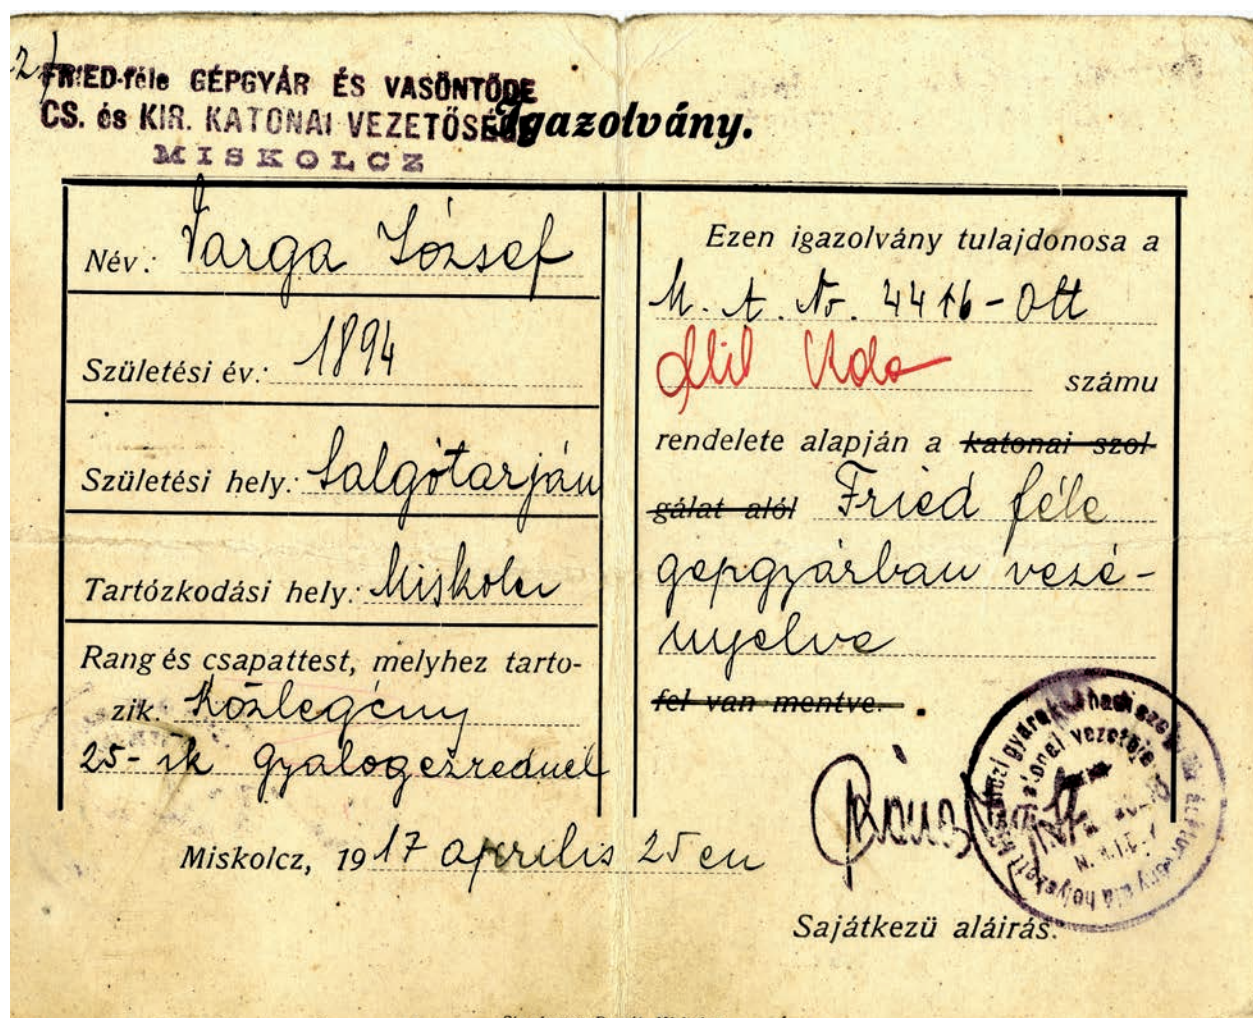 2)
FRIED-féle GÉPGYÁR ÉS VASÖNTÖDE
CS. és KIR. KATONAI VEZETŐSÉGE
MISKOLCZ
Igazolvány.
Név: Varga József
Születési év: 1894
Születési hely: Salgótarján
Tartózkodási hely: Miskolcz
Rang és csapattest, melyhez tarto-
zik. Közlegény
25-ik gyalogezrednél
Ezen igazolvány tulajdonosa a
M. t. Nr. 4416-Ott
számu
rendelete alapján a katonai szol-
gálat alól Fried féle
gépgyárban vezé-
nyelve
fel van mentve.
Miskolcz, 1917 aprilis 25 en
Sajátkezü aláirás.